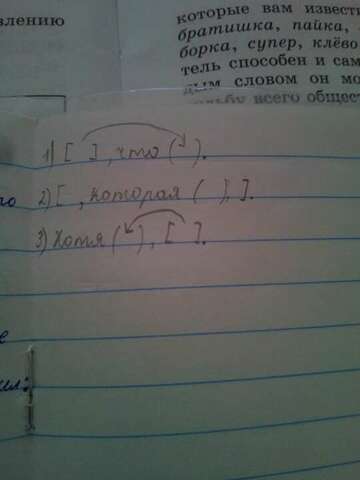 влению
которые вам извест
братишка, пайка,
борка, супер, клёво
тель способен и сам
дым словом он мо
всего общест
1) [ ], что ( ).
2) [ , которая ( ), ].
3) Хотя ( ), [ ].